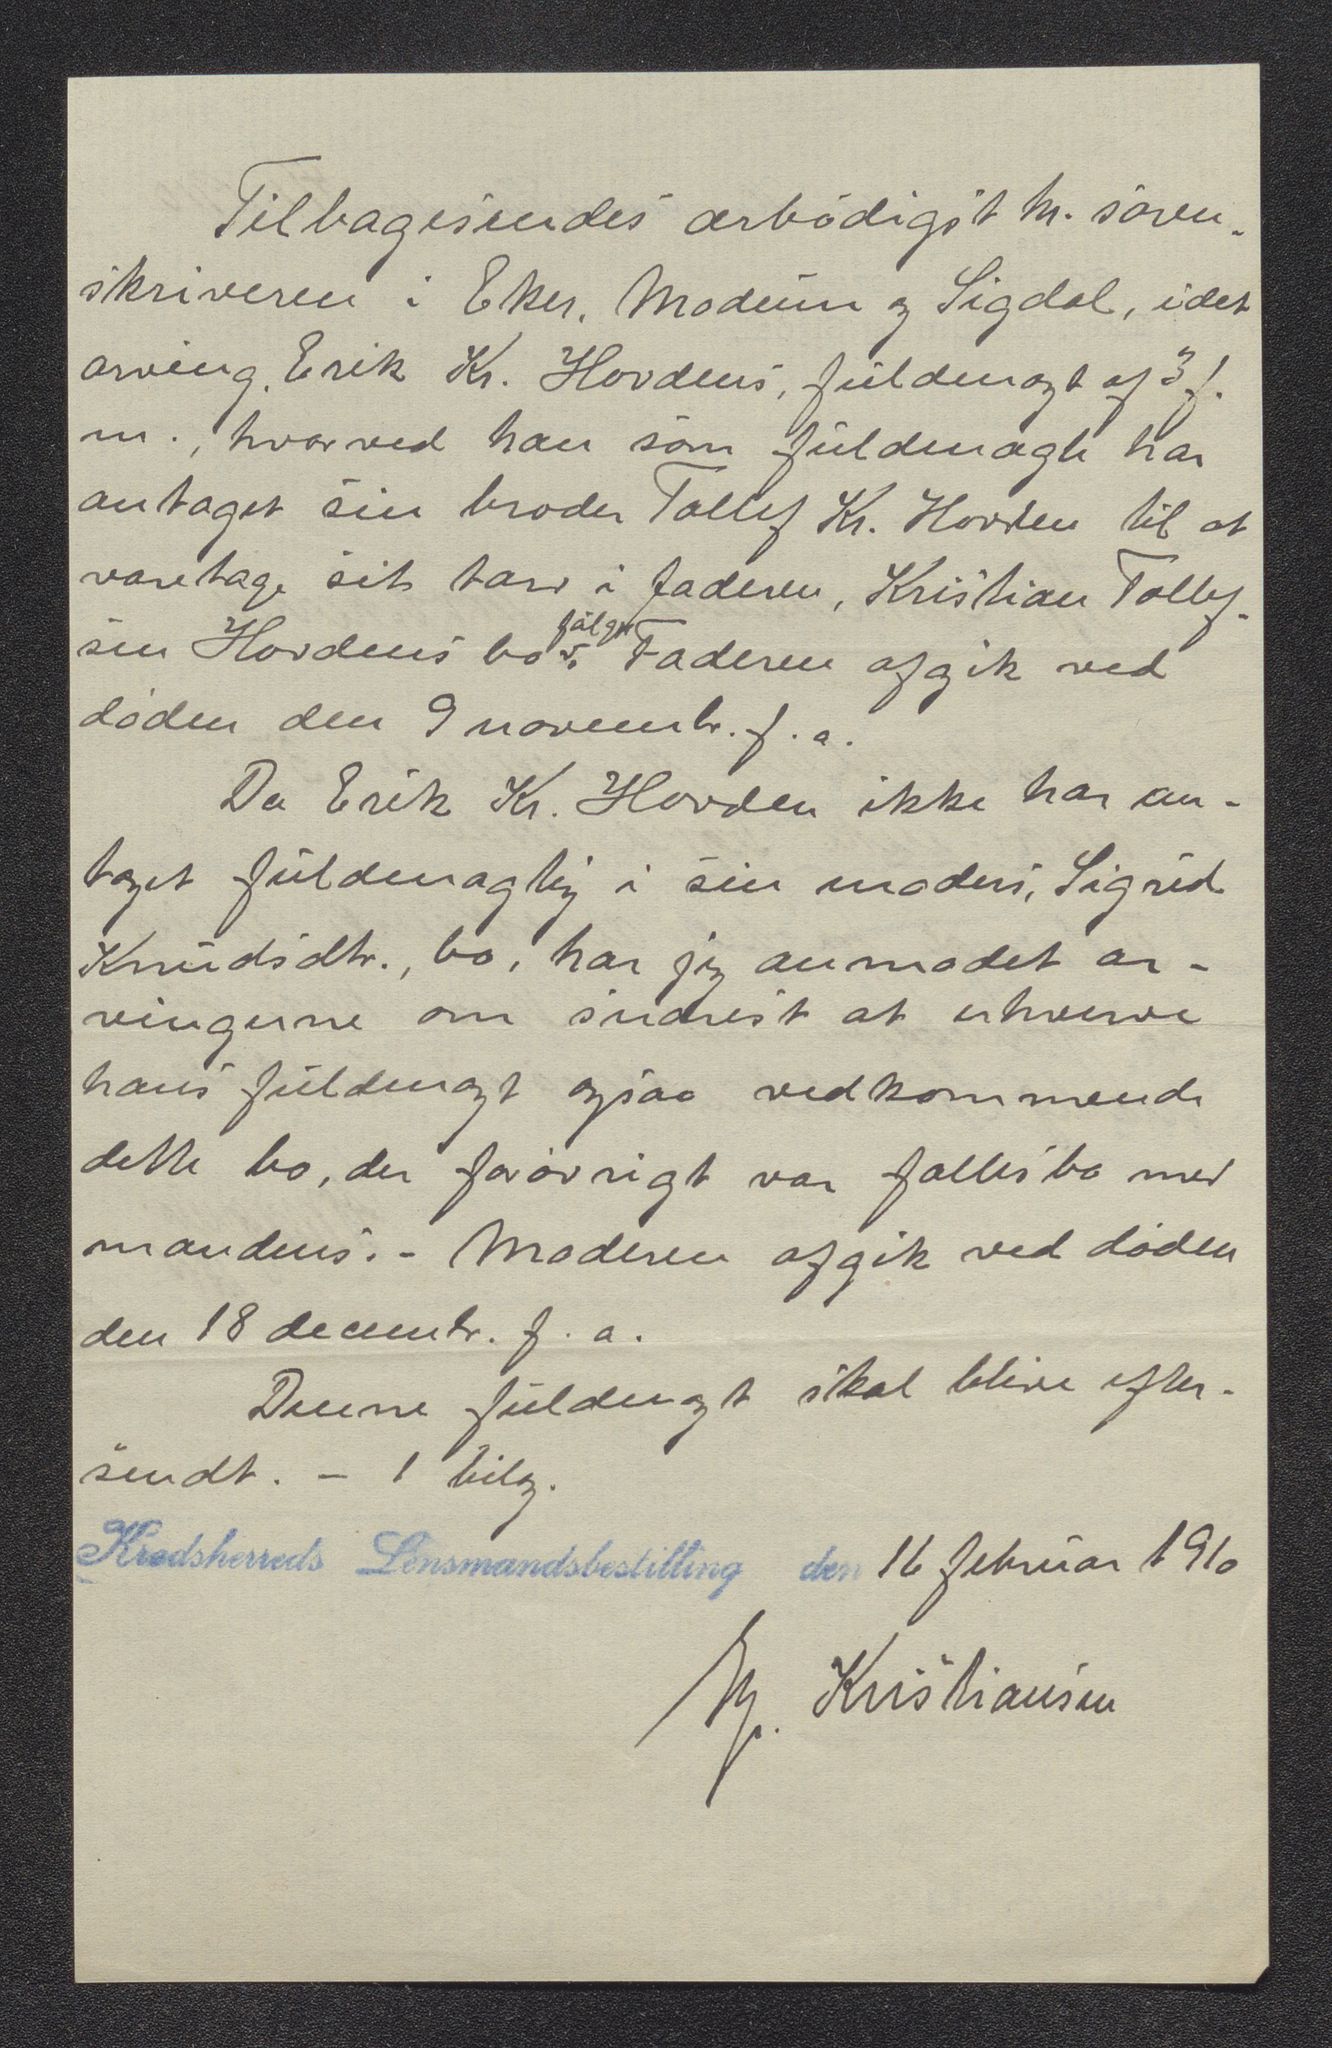 Tilbagesendes ærbödigst hr. sören-
skriveren i Eker, Modum og Sigdal, idet
arving, Erik Kr. Hovdens, fuldmagt af 3 f.
m., hvorved han som fuldmægtig har
antaget sin broder Tollef Kr. Hovden til at
varetage sit tarv i faderen, Kristian Tollef-
sen Hovdens bo fölger. Faderen afgik ved
döden den 9 novembr. f. a.
Da Erik Kr. Hovden ikke har an-
taget fuldmægtig i sin moders, Sigrid
Knudsdtr., bo, har jeg anmodet ar-
vingerne om snarest at erhverve
hans fuldmagt ogsaa vedkommende
dette bo, der forövrigt var fællesbo med
mandens. - Moderen afgik ved döden
den 18 decembr. f. a.
Denne fuldmagt skal blive efter-
sendt. - 1 bilag.
Krødsherreds Lensmandsbestilling den 16 februar 1910
Kristiansen